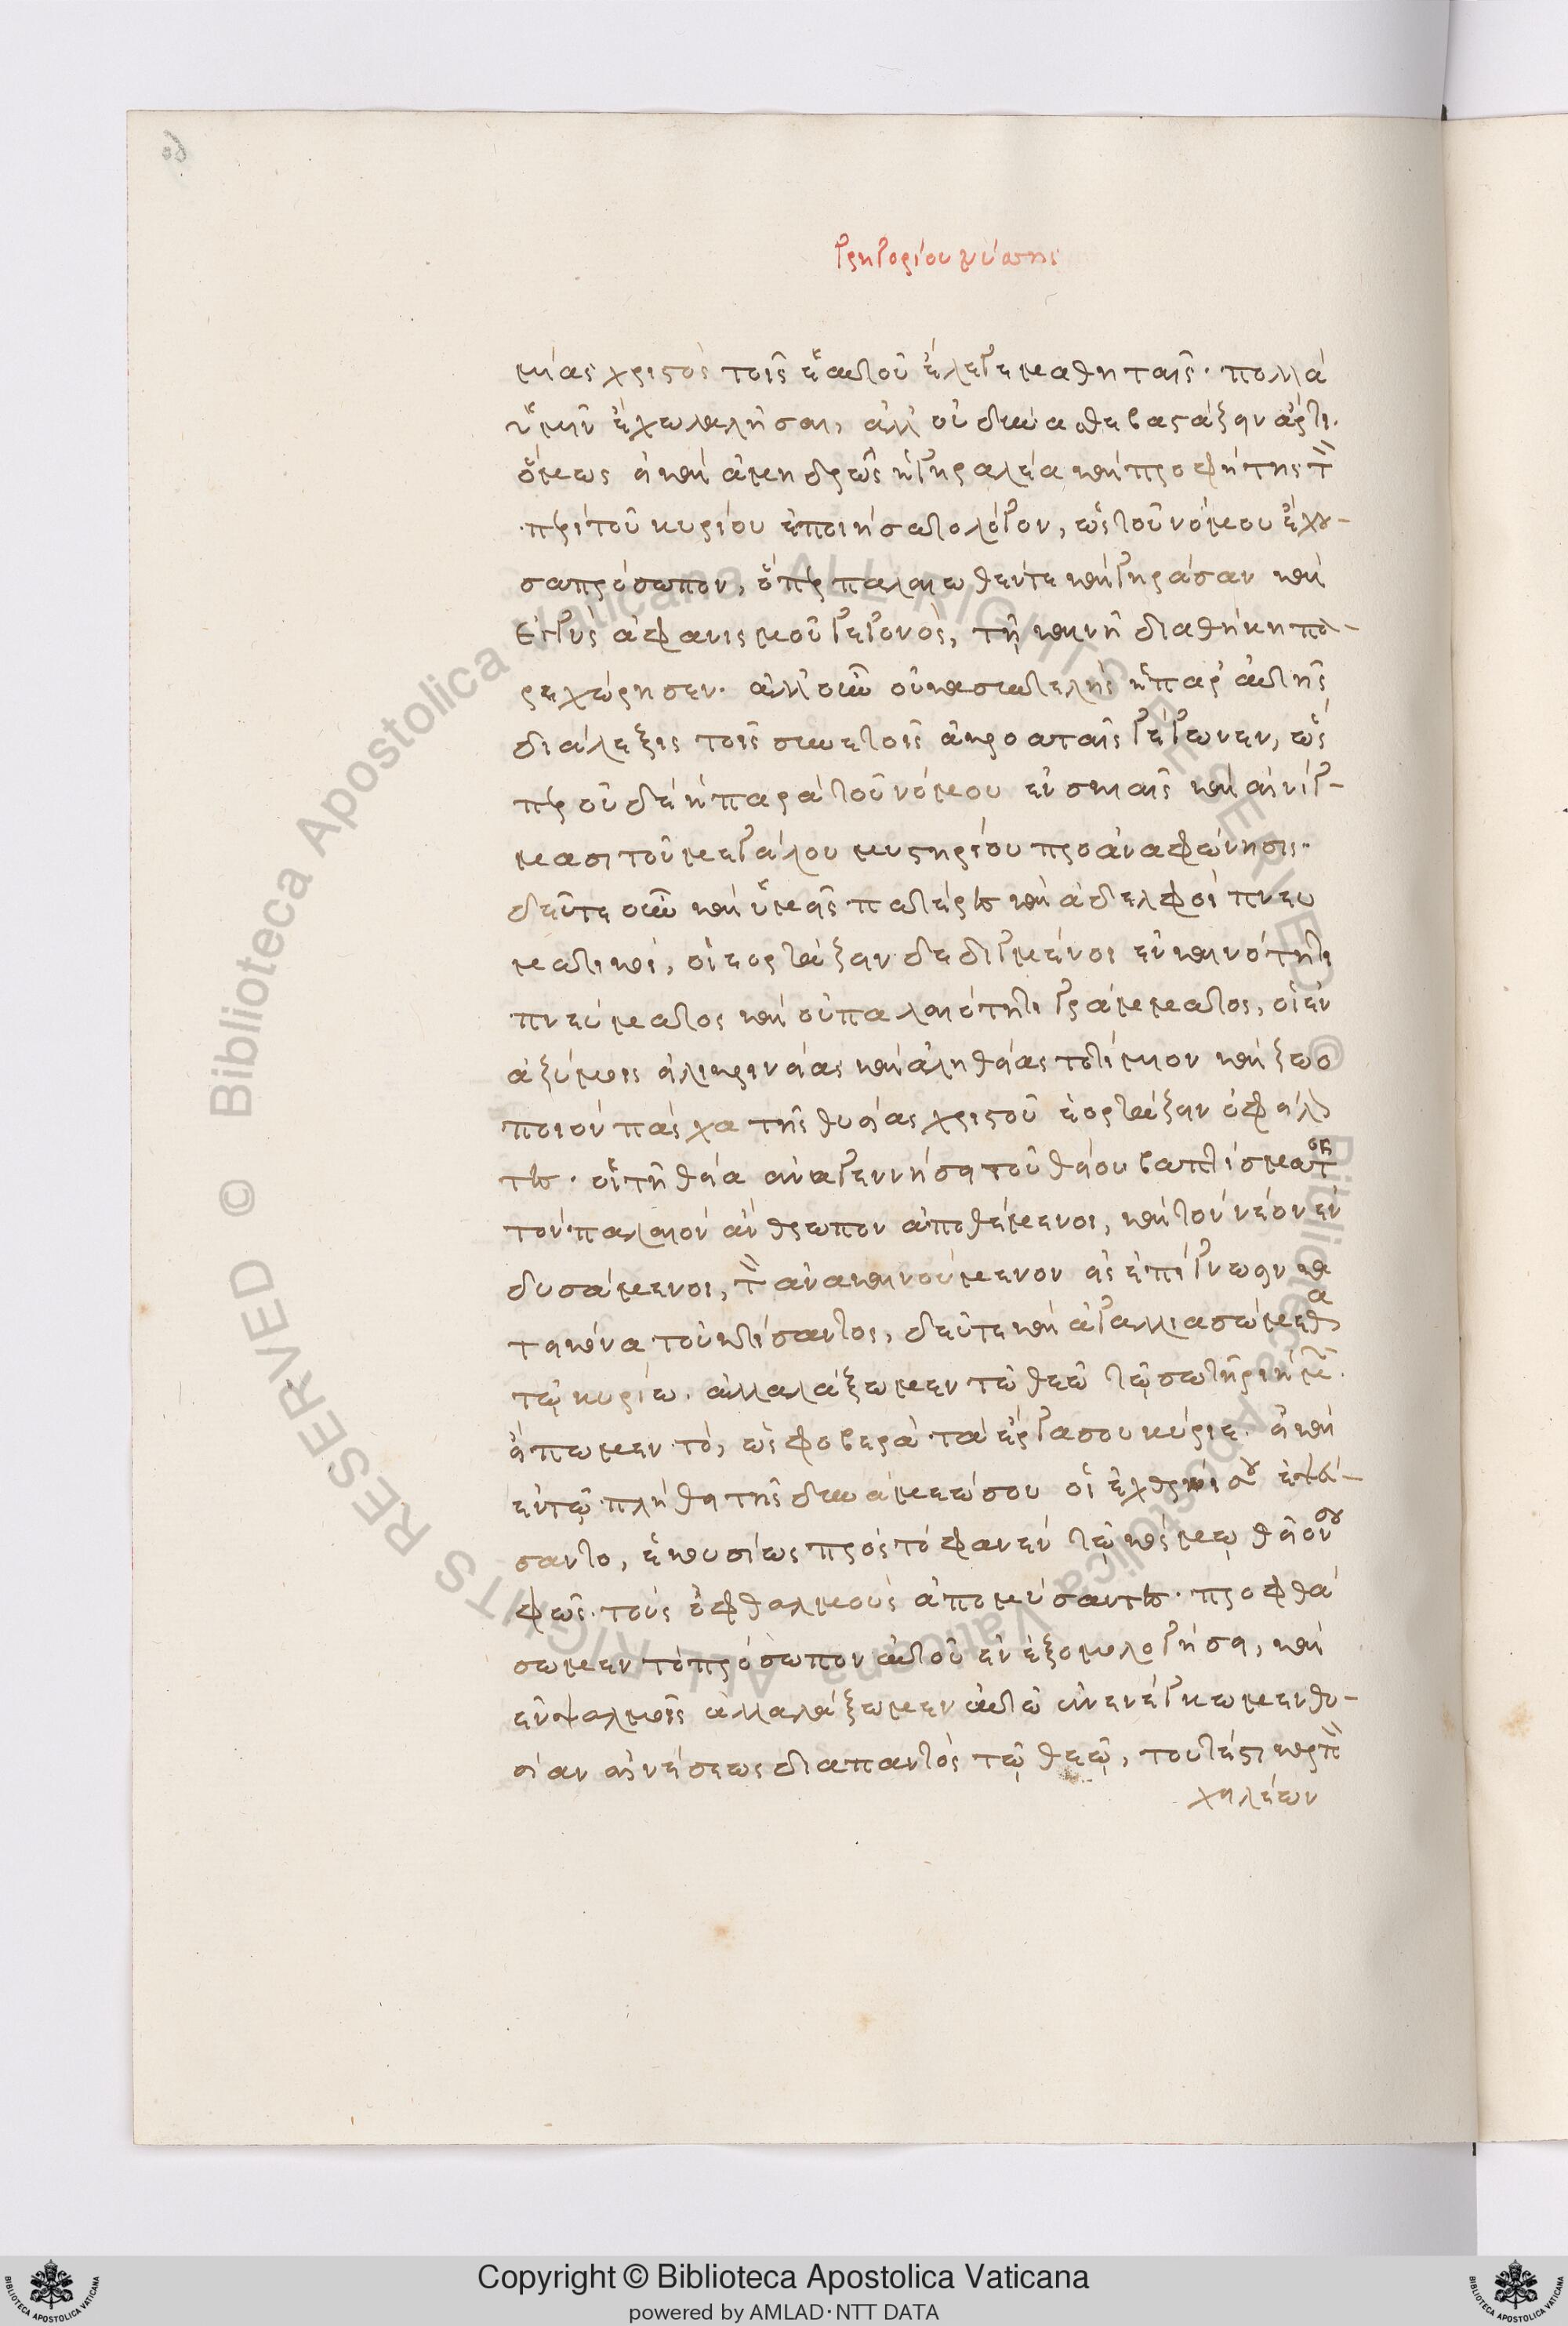 Γρηγορίου νύσσης
μίας χριστὸς τοῖς ἑαυτοῦ ἔλεγε μαθηταῖς· πολλὰ
ὑμῖν ἔχω λαλῆσαι, ἀλλ' οὐ δύνασθε βαστάζειν ἄρτι.
ὅμως εἰ καὶ ἀμυδρῶς ἡ γηραλέα καὶ προφήτης τὸν
περὶ τοῦ κυρίου ἐποιήσατο λόγον, ὡς τοῦ νόμου ἔχου-
σα πρόσωπον, ὅπερ παλαιωθέν τε καὶ γηράσαν καὶ
ἐγγὺς ἀφανισμοῦ γεγονὸς, τῇ καινῇ διαθήκῃ πα-
ρεχώρησεν. ἀλλ' οὖν οὐκ ἀσυντελὴς ἡ παρ' αὐτῆς
διάλεξις τοῖς συνετοῖς ἀκροαταῖς γέγωνεν, ὥς
περ οὐδὲ ἡ παρὰ τοῦ νόμου ἐν σκιαῖς καὶ αἰνίγ-
μασι τοῦ μεγάλου μυστηρίου προαναφώνησις.
δεῦτε οὖν καὶ ὑμεῖς πατέρες καὶ ἀδελφοὶ πνευ
ματικοὶ, οἱ ἑορτάζειν δεδιγμένοι ἐν καινότητι
πνεύματος καὶ οὐ παλαιότητι γράμματος, οἱ ἐν
ἀζύμοις εἰλικρινείας καὶ ἀληθείας τὸ τίμιον καὶ ζωο
ποιὸν πάσχα τῆς θυσίας χριστοῦ ἑορτάζειν ὀφείλον
τες. οἱ τῇ θείᾳ ἀναγεννήσει τοῦ θείου βαπτίσματος
τὸν παλαιὸν ἄνθρωπον ἀποθέμενοι, καὶ τὸν νέον ἐν
δυσάμενοι, τὸν ἀνακαινούμενον εἰς ἐπίγνωσιν κα
τ' εἰκόνα τοῦ κτίσαντος, δεῦτε καὶ ἀγαλλιασώμεθα
τῷ κυρίῳ. ἀλλαλάξωμεν τῷ θεῷ τῷ σωτῆρι ἡμῶν.
εἴπωμεν τὸ, ὡς φοβερὰ τὰ ἔργα σου κύριε. εἰ καὶ
ἐν τῷ πλήθει τῆς δυνάμεώς σου οἱ ἐχθροί σου ἐψεύ-
σαντο, ἑκουσίως πρὸς τὸ φανὲν τῷ κόσμῳ θεῖόν σου
φῶς τοὺς ὀφθαλμοὺς ἀπομύσαντες. προφθά
σωμεν τὸ πρόσωπον αὐτοῦ ἐν ἐξομολογήσει, καὶ
ἐν ψαλμοῖς ἀλλαλάξωμεν αὐτῷ ἀνενέγκωμεν θυ-
σίαν αἰνέσεως διαπαντὸς τῷ θεῷ, τουτέστι καρπὸν
χειλέων
Copyright © Biblioteca Apostolica Vaticana
powered by AMLAD·NTT DATA